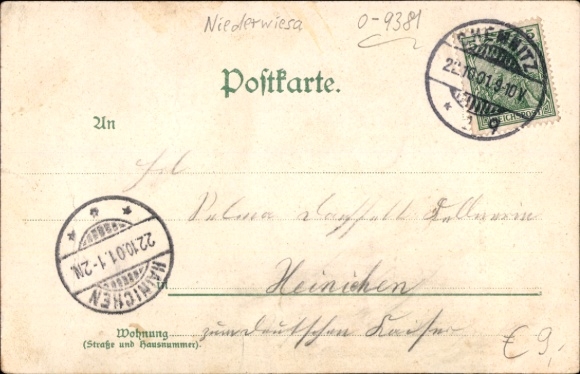 Niederwiesa
0-9381
CHEMNITZ
22.10.01.9-10V.
* 9
Postkarte.
An
Selma
in Heinichen
HAINICHEN
22.10.01.1-2N.
Wohnung
(Straße und Hausnummer).
zum Deutschen Kaiser
€ 9,-